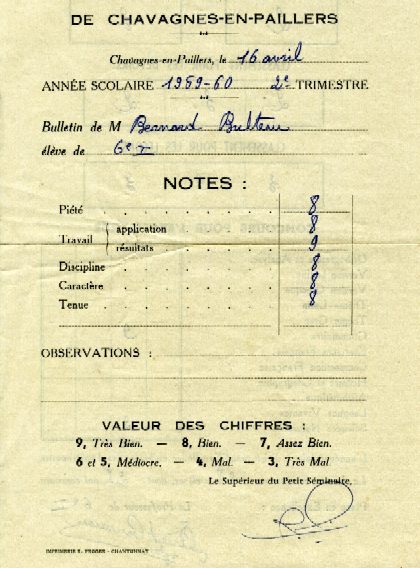 DE CHAVAGNES-EN-PAILLERS
Chavagnes-en-Paillers, le 16 avril
ANNÉE SCOLAIRE 1959-60 2e TRIMESTRE
Bulletin de M Bernard Bulteau
élève de 6e I
NOTES :
Piété . . . . . . 8
Travail application . . . . 8
résultats . . . . 9
Discipline . . . . . 8
Caractère . . . . . 8
Tenue . . . . . . 8
OBSERVATIONS :
VALEUR DES CHIFFRES :
9, Très Bien. — 8, Bien. — 7, Assez Bien.
6 et 5, Médiocre. — 4, Mal. — 3, Très Mal
Le Supérieur du Petit Séminaire,
IMPRIMERIE E. FROGER - CHANTONNAY